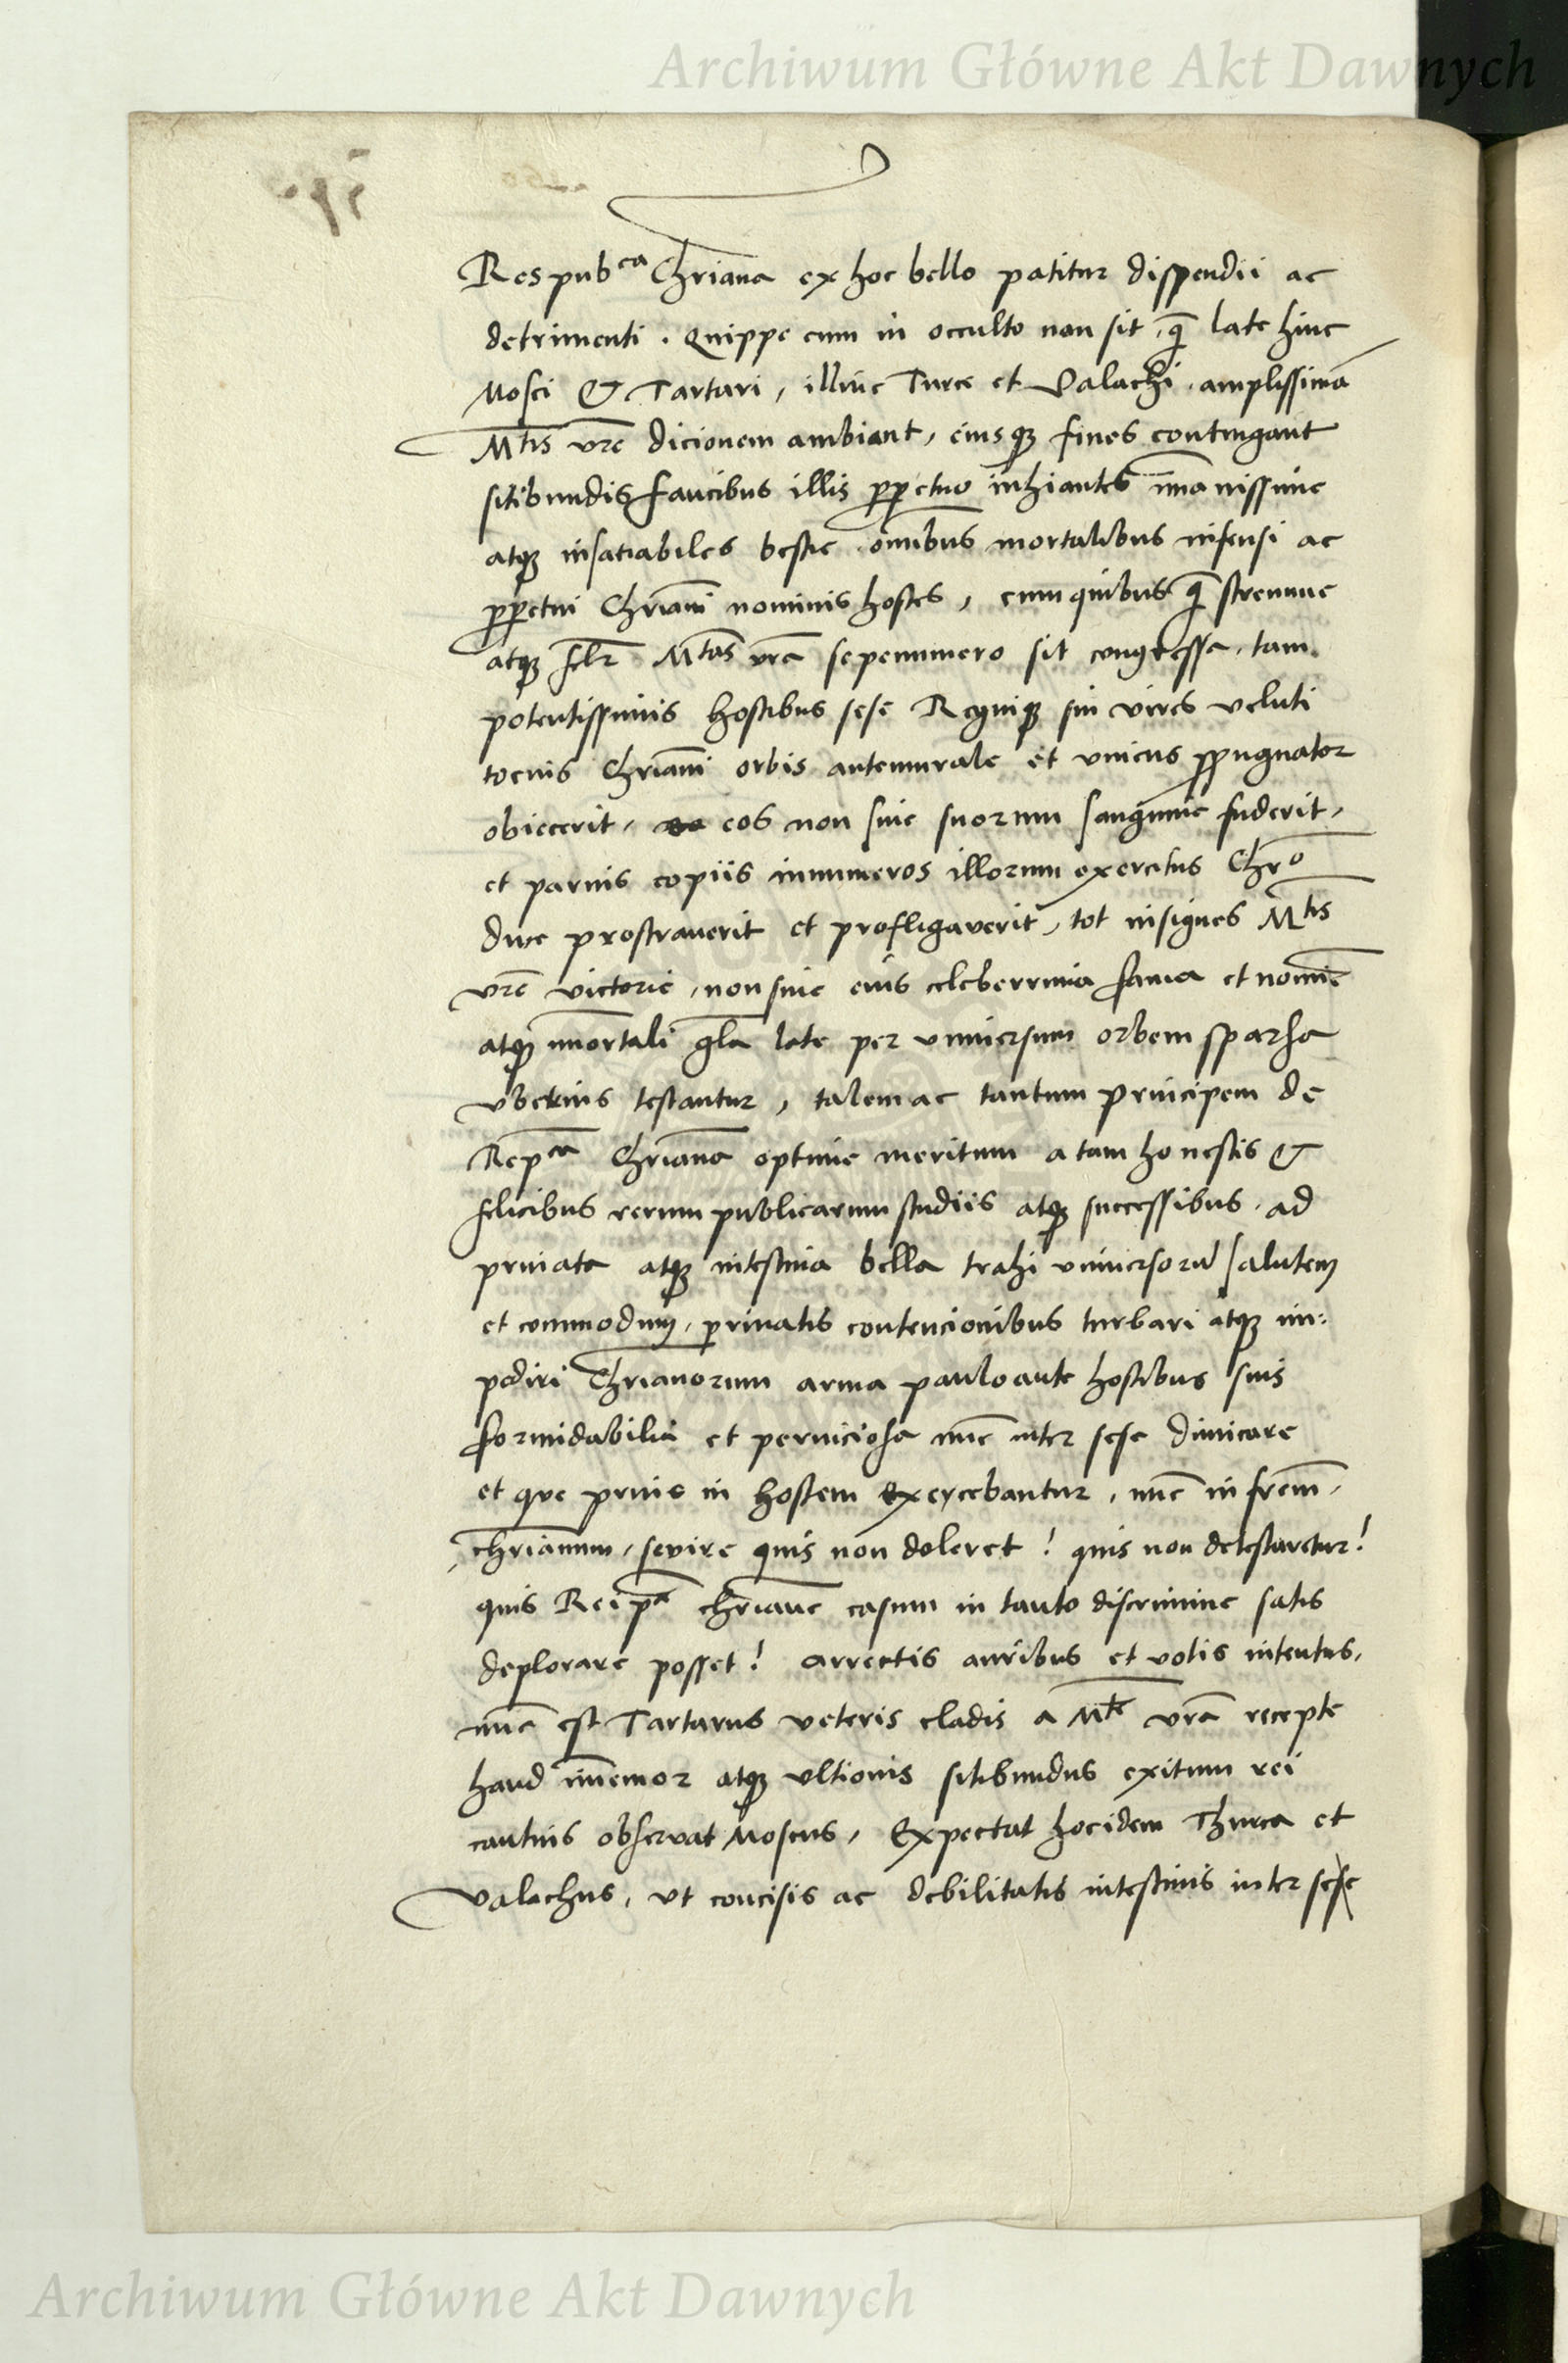 Archiwum Główne Akt Dawnych
Respub^ca Chr̄iana ex hoc bello patitur dispendii ac
detrimenti . Quippe cum in occulto non sit , q̄ late hinc
Mosci & Tartari , illinc Turce et Valachi , amplissimā
M^tis vr̄e dicionem ambiant , eiusq̨ fines contingant
sitibundis faucibus illis ꝑpetuo inhiantes im̄anissime
atq̨ insatiabiles bestie , om̄ibus mortalibus infensi ac
ꝑpetui Chr̄iani nominis hostes , cum quibus q̄ strenue
atq̨ fel̄r M^tas vr̄a sepenumero sit congressa , tam
potentissimis hostibus sese Regniq̨ sui vires veluti
tocius Chr̄iani orbis antemurale et vnicus ꝓpugnator
obiecerit , eos non sine suorum sanguine fuderit ,
et paruis copiis innumeros illorum exercitus Chr̄o
duce prostrauerit et profligaverit , tot insignes M^tis
vr̄e victorie , non sine eius celeberrima fama et nomīe
atq̨ im̄ortali gl̄a late per vniuersum orbem sparsa
vberius testantur , talem ac tantum principem de
Rep^ca Chr̄iana optime meritum a tam honestis &
felicibus rerum publicarum studiis atq̨ successibus , ad
priuata atq̨ intestina bella trahi vniuersorū salutem
et commodum , priuatis contencionibus turbari atq̨ im:
pediri Chr̄ianorum arma pauloante hostibus suis
formidabilia et perniciosa nūc inter sese dimicare
et que prius in hostem exercebantur , nūc in fr̄em ,
chr̄ianum , sevire quis non doleret ! quis non detestaretur !
quis Reip^ce chr̄iane casum in tanto discrimine satis
deplorare posset ! arrectis auribus et votis intentus ,
nūc est Tartarus veteris cladis a M^te vr̄a recepte
haud im̄emor atq̨ vltionis sitibundus exitum rei
cautius observat Moscus , Expectat hocidem Thurca et
Valachus , vt concisis ac debilitatis intestinis inter sese
Archiwum Główne Akt Dawnych